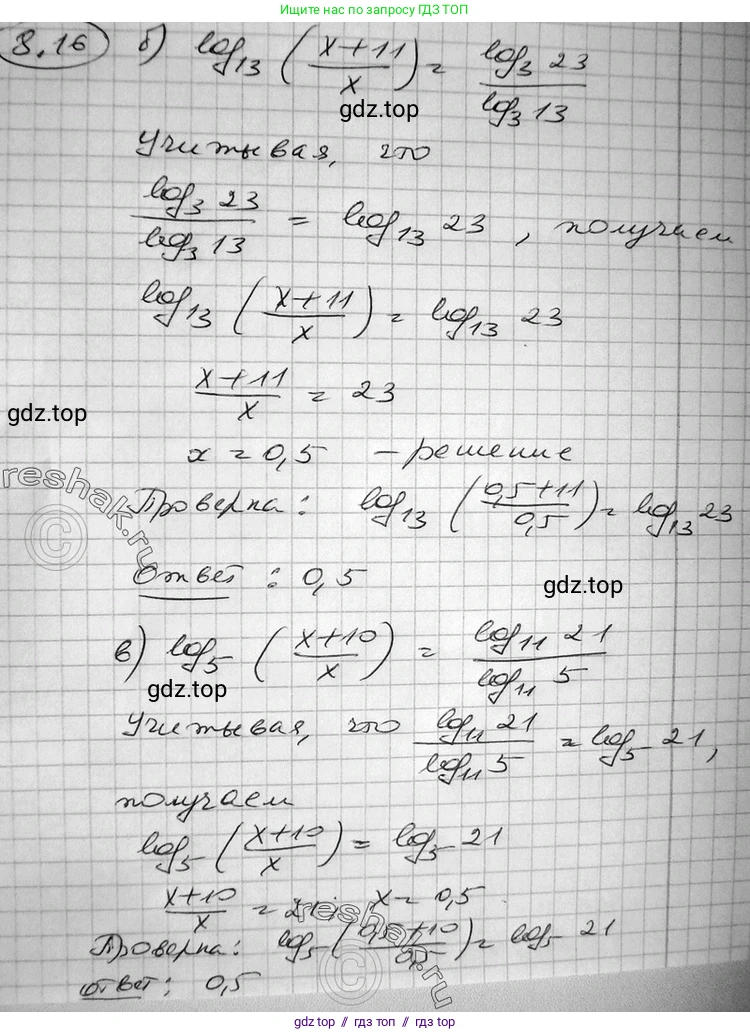 Ищите решение по запросу ГДЗ ТОП
8.16 б) log₁₃ ((x+11)/x) = log₃ 23 / log₃ 13
gdz.top
Учитывая, что
log₃ 23 / log₃ 13 = log₁₃ 23, получаем
log₁₃ ((x+11)/x) = log₁₃ 23
(x+11)/x = 23
gdz.top
x = 0,5 – решение
reshak.ru
Проверка: log₁₃ ((0,5+11)/0,5) = log₁₃ 23
Ответ: 0,5
gdz.top
в) log₅ ((x+10)/x) = log₁₁ 21 / log₁₁ 5
gdz.top
Учитывая, что log₁₁ 21 / log₁₁ 5 = log₅ 21,
получаем
log₅ ((x+10)/x) = log₅ 21
(x+10)/x = 21, x = 0,5
Проверка: log₅ ((0,5+10)/0,5) = log₅ 21
ответ: 0,5
reshak.ru
gdz.top // gdz.top // gdz.top